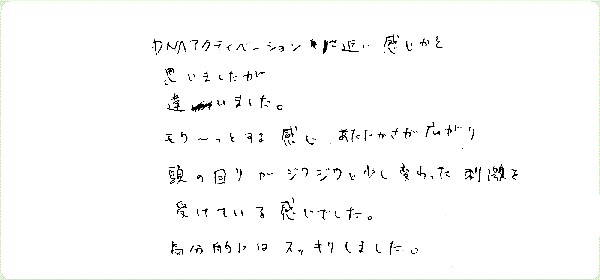 DNAアクティベーションに近い感じかと
思いましたが
違いました。
モワ〜っとする感じ、あたたかさが広がり
頭の回りがジワジワと少し変わった刺激を
受けている感じでした。
気分的にはスッキリしました。